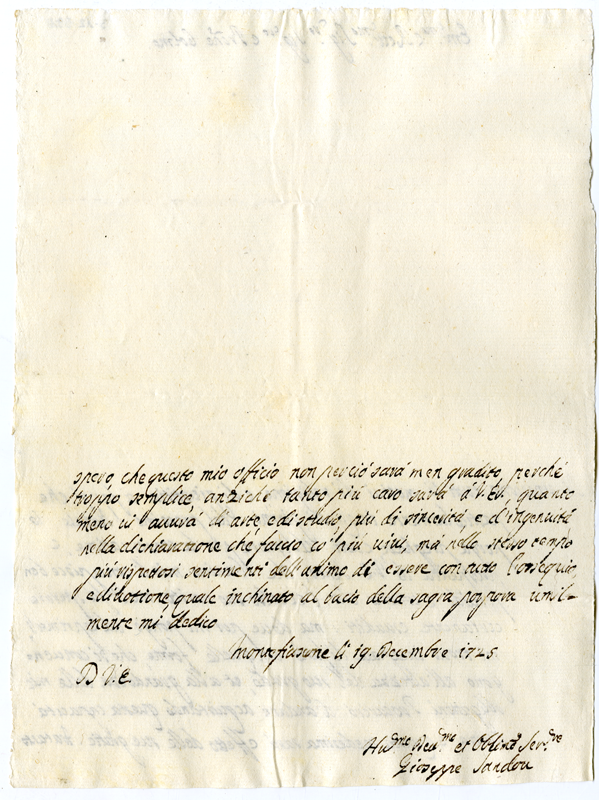 spero, che questo mio officio non perciò sarà men gradito, perche
troppo semplice, anziche tanto più caro sarà à V. Em., quanto
meno vi avverà di arte, e di studio, più di sincerità e d'ingenuità
nella dichiaratione che faccio co' più vivi, mà nello stesso tempo
più rispettosi sentimenti dell'animo di essere con tutto l'ossequio,
e divotione, quale inchinato al bacio della sagra porpora umil-
mente mi dedico
Montefiascone li 19. Decembre 1725
D. V. E.
Hu.mo Dev.mo et Oblig.mo Serv.re
Gioseppe